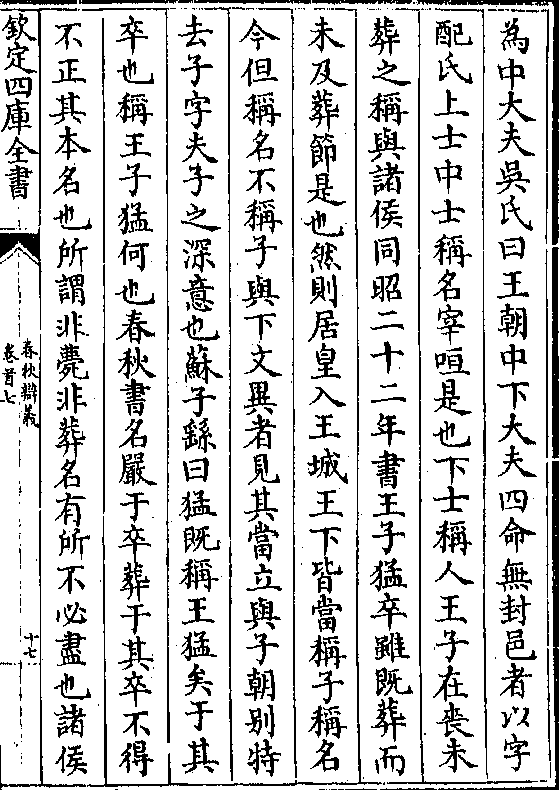 為中大夫吳氏曰王朝中下大夫四命無封邑者以字
配氏上士中士稱名宰咺是也下士稱人王子在喪未
葬之稱與諸侯同昭二十二年書王子猛卒雖既葬而
未及葬節是也然則居皇入王城王下皆當稱子稱名
今但稱名不稱子與下文異者見其當立與子朝别特
去子字夫子之深意也蘇子繇曰猛既稱王猛矣于其
卒也稱王子猛何也春秋書名嚴于卒葬于其卒不得
不正其本名也所謂非薨非葬名有所不必盡也諸侯
欽定四庫全書
春秋辯義
卷首七
十七